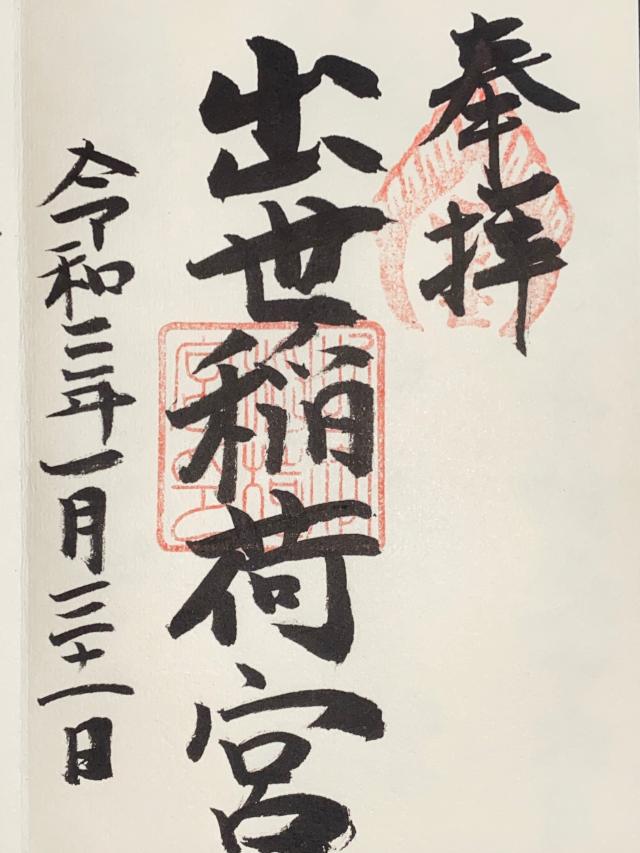 奉拝
出世稲荷宮
令和二年一月三十一日